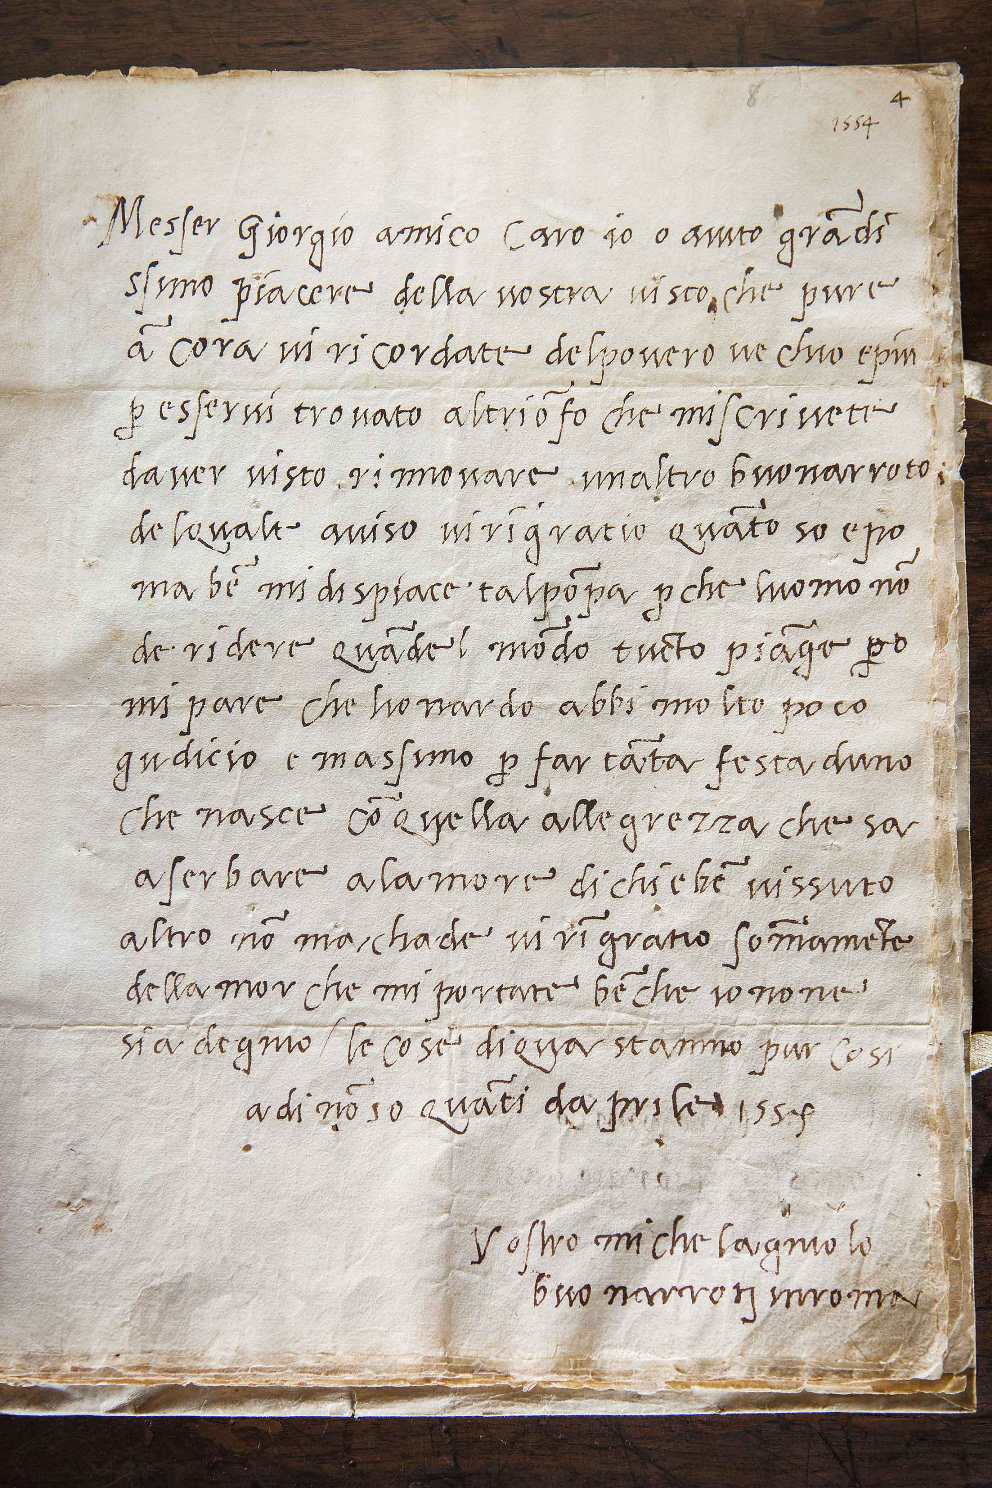 8 4
1554
Messer Giorgio amico caro io o auuto grādi
ssimo piacere della vostra visto che pure
ā cora vi ri cordate del povero vechio e piu
p̱ esservi trovato al triōfo che mi scrivete
d aver visto rinnovare un altro buonarroto
del quale aviso vi rīgratio quāto so e po
ma bē mi dispiace tal pōpa p̱ che l uomo nō
de ridere quāde l mōdo tucto piāge p̱o
mi pare che lionardo abbi molto poco
gudicio e massimo p̱ far tāta festa d uno
che nasce cō quella allegrezza che s a
a serbare a la morte di chi e bē vissuto
altro nō m a chade vi rīgratio sommamēte
dell amor che mi portate bēche io no ne
sia degnio / le cose di qua stanno pur cosi
a di nō so quāti d aprile 1554
Vostro michelagniolo
buonarroti in roma